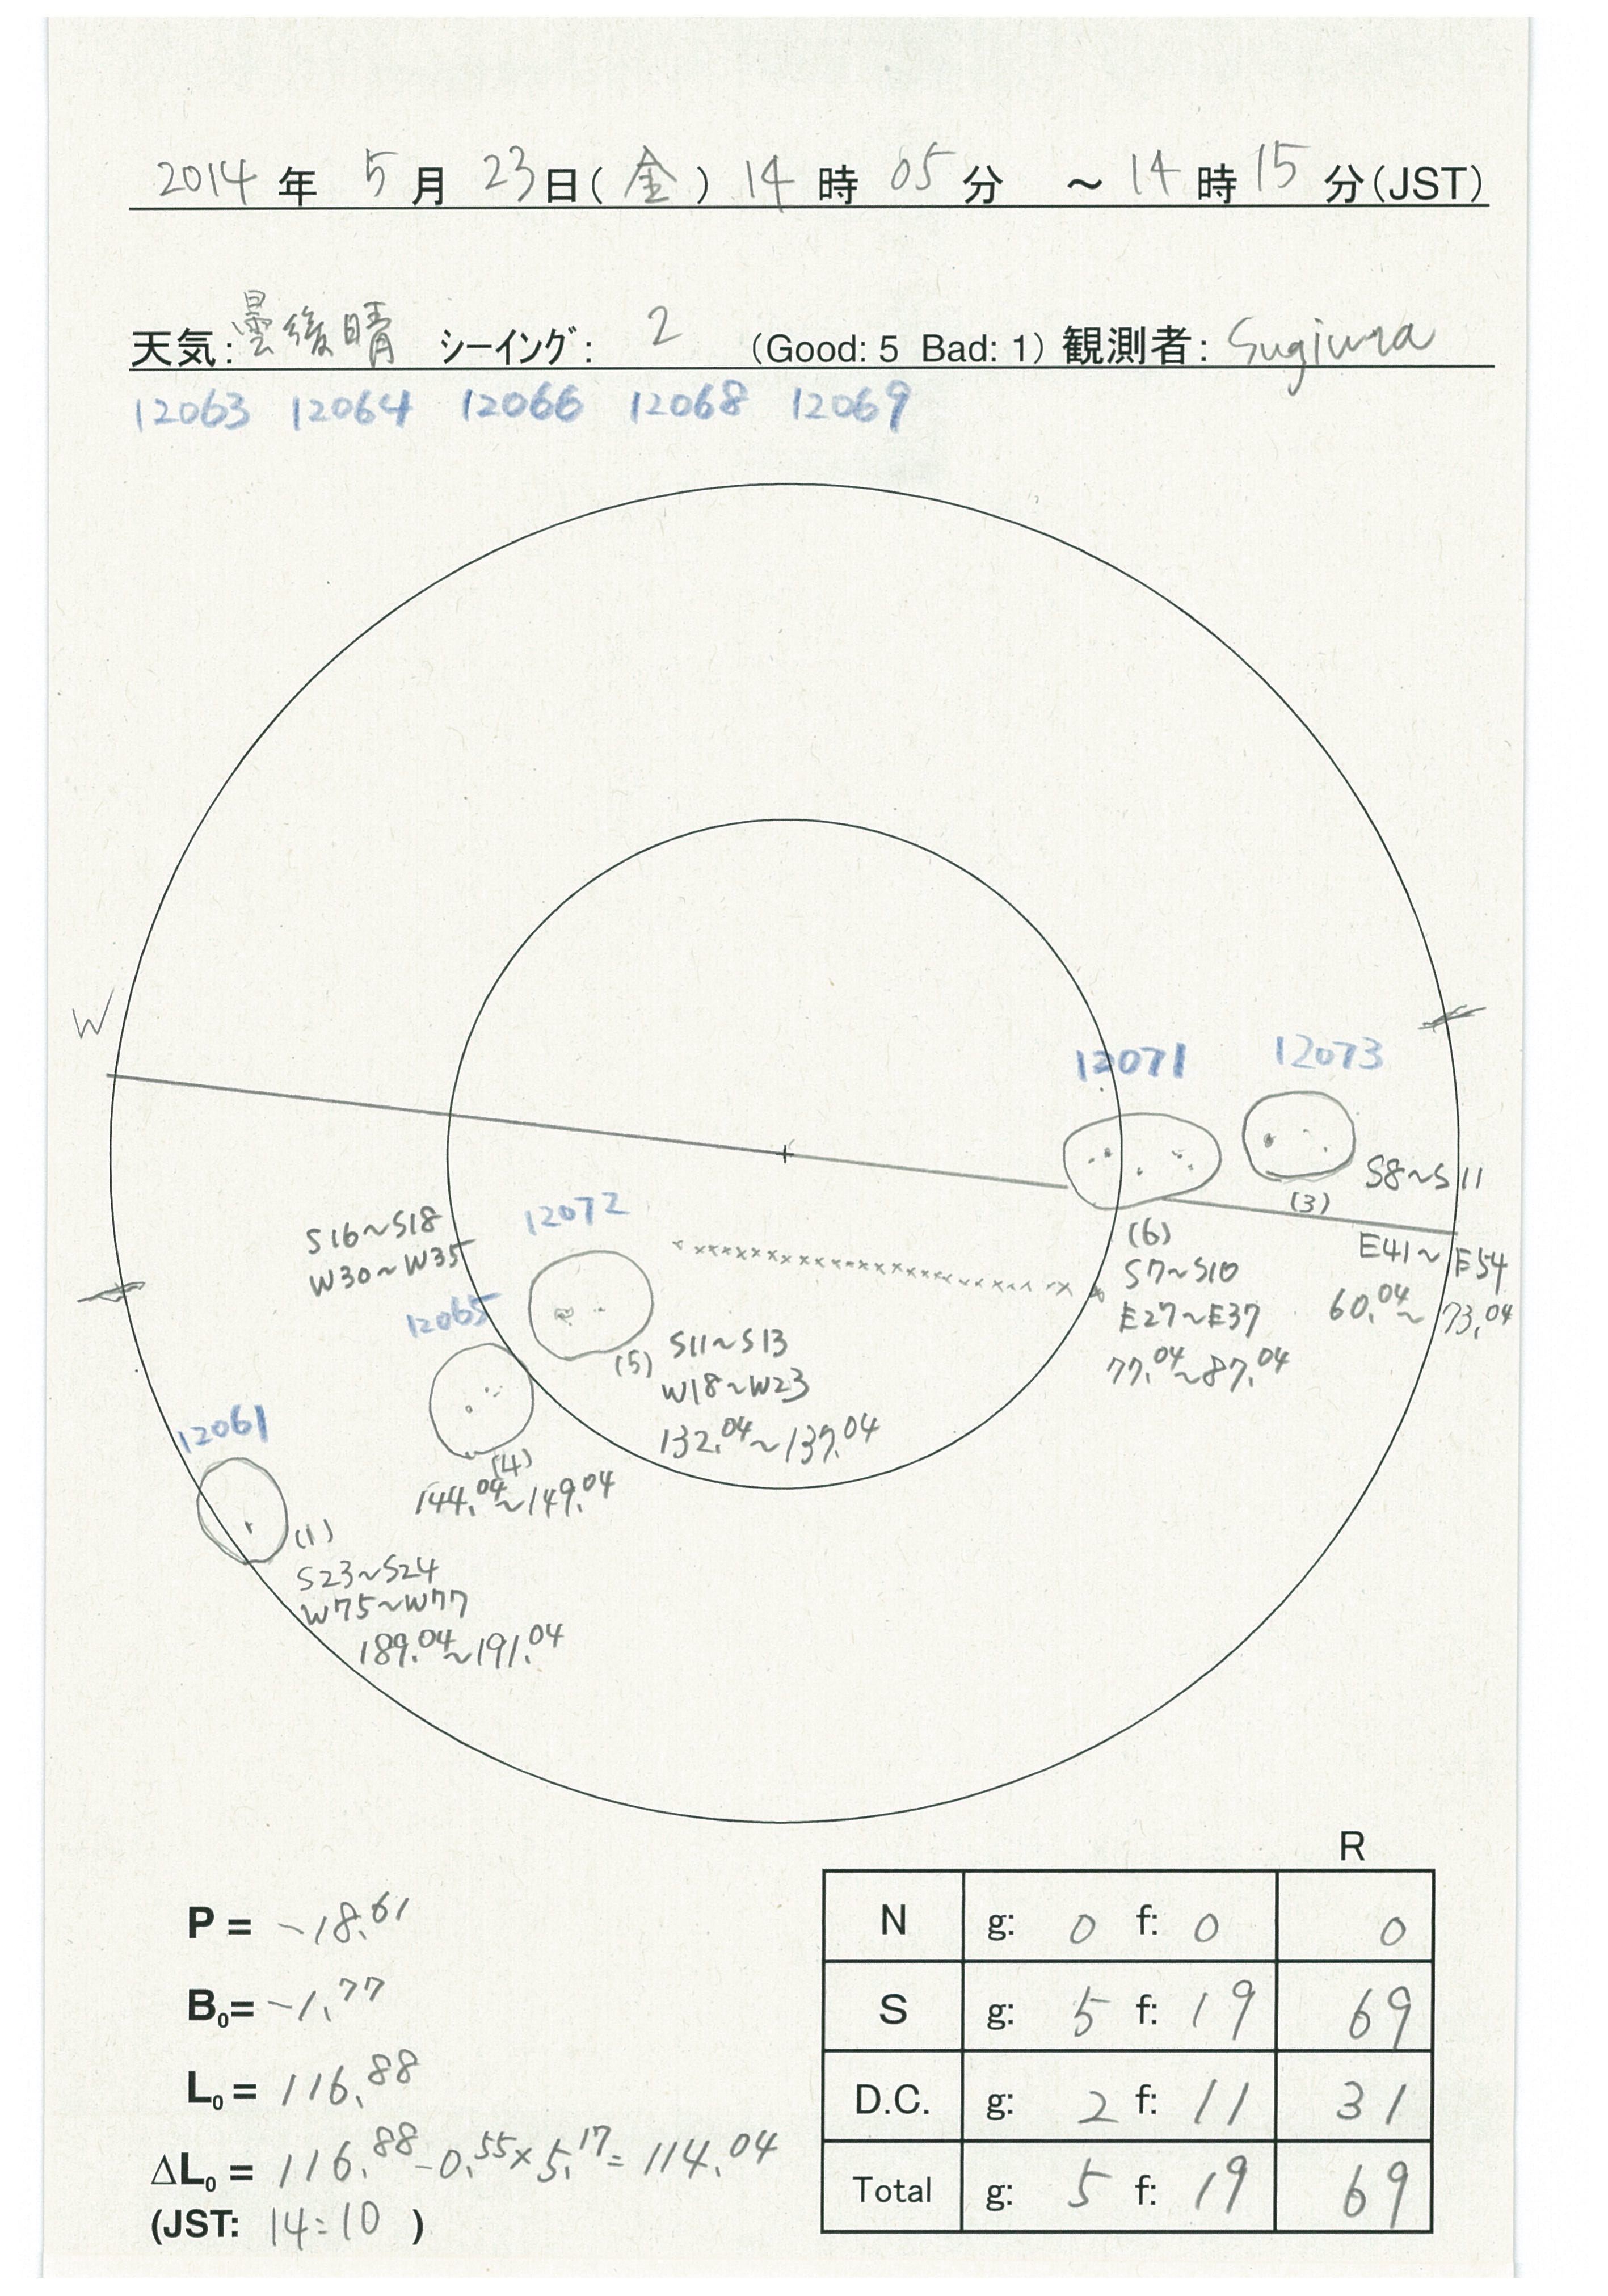 2014年 5月 23日(金) 14時 05分 ～14時15分(JST)
天気:曇後晴 シーイング: 2 (Good: 5 Bad: 1) 観測者: Sugiura
12063 12064 12066 12068 12069
W
12071 12073
S8~S11
(3)
E41~E54
60.04~73.04
(6)
S7~S10
E27~E37
77.04~87.04
12072
S16~S18
W30~W35
12065
(5) S11~S13
W18~W23
132.04~137.04
(4)
144.04~149.04
12061
(1)
S23~S24
W75~W77
189.04~191.04
R
N g: 0 f: 0 0
S g: 5 f: 19 69
D.C. g: 2 f: 11 31
Total g: 5 f: 19 69
P = -18.61
B0= -1.77
L0= 116.88
ΔL0= 116.88-0.55×5.17= 114.04
(JST: 14:10 )